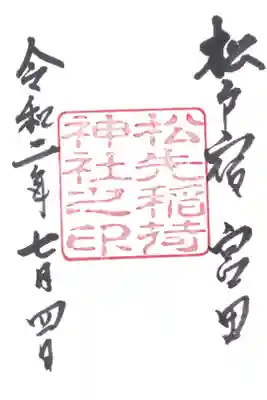 松戸宿 宮田
松先稲荷
神社之印
令和二年 七月 四日